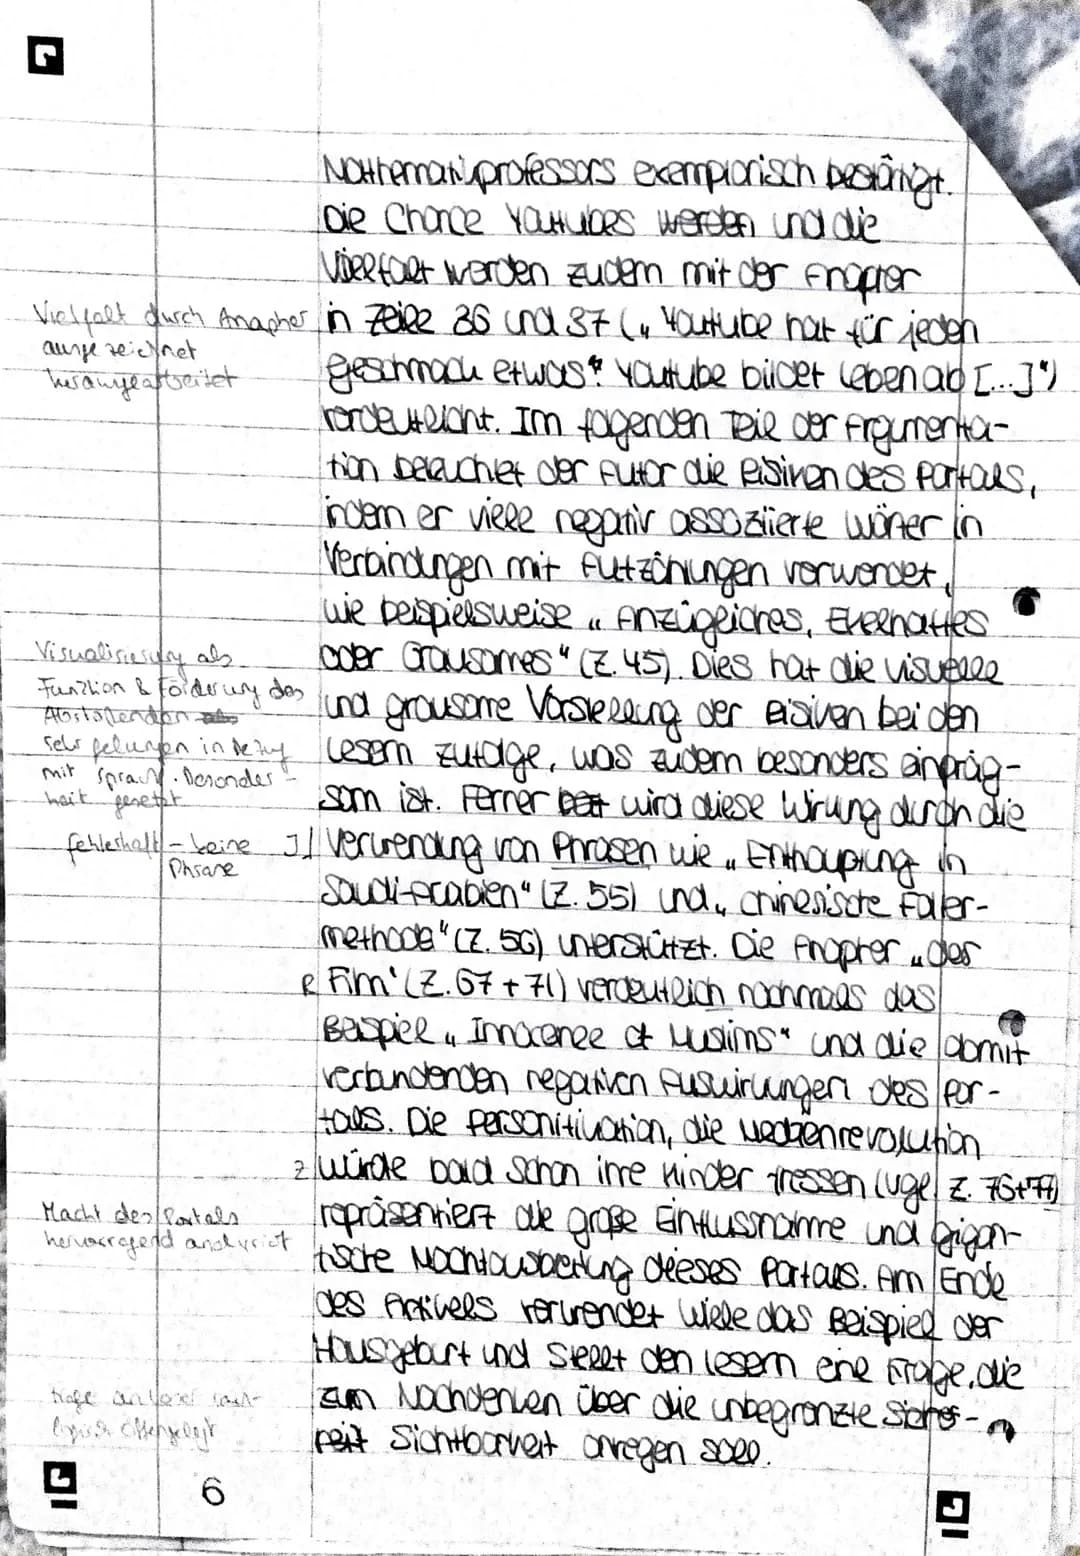 Mathematikprofessors exemplarisch bestätigt.
Die Chance Youtubes werden und die
Vielfalt werden zudem mit der Anapher
Vielfalt durch Anapher
ausgezeichnet
herausgearbeitet
in Zeile 36 und 37 („Youtube hat für jeden
Geschmack etwas“. Youtube bildet Leben ab [...]“)
verdeutlicht. Im folgenden Teil der Argumenta-
tion beleuchtet der Autor die Risiken des Portals,
indem er viele negativ assoziierte Wörter in
Verbindungen mit Aufzählungen verwendet,
wie beispielsweise „Anzügliches, Ekelhaftes
Visualisierung als
Funktion & Förderung des
Abstoßenden
sehr gelungen in Bezug
mit sprachl. Besonder-
heit gesetzt
oder Grausames“ (Z. 45). Dies hat die visuelle
und grausame Vorstellung der Risiken bei den
Lesern zufolge, was zudem besonders einpräg-
sam ist. Ferner wird diese Wirkung durch die
fehlerhaft - keine
Phrase
Verwendung von Phrasen wie „Enthauptung in
Saudi-Arabien“ (Z. 55) und „chinesische Folter-
methode“ (Z. 56) unterstützt. Die Anapher „der
R Film“ (Z. 67 + 71) verdeutlich nochmals das
Beispiel „Innocence of Muslims“ und die damit
verbundenden negativen Auswirkungen des Por-
tals. Die Personifikation, die Medienrevolution
Z würde bald schon ihre Kinder fressen (vgl. Z. 76+77)
Macht des Portals
hervorragend analysiert
repräsentiert die große Einflussnahme und gigan-
tische Machtausbeitung dieses Portals. Am Ende
des Artikels verwendet Wiele das Beispiel der
Hausgeburt und stellt den Lesern eine Frage, die
zum Nachdenken über die unbegrenzte Sicher-
heit Sichtbarkeit anregen soll.
Frage an Leser
offengelegt
6